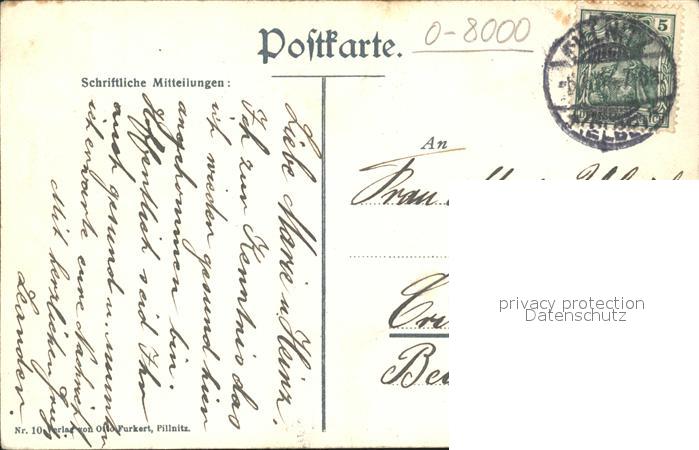 Postkarte.
0-8000
Schriftliche Mitteilungen:
Liebe Marie u. Heinz.
Ich zur Kenntnis das
ich wieder gesund hier
angekommen bin.
Hoffentlich seid Ihr
auch gesund u. munter
ich erwarte eure Nachricht
Mit herzlichen Gruß
An
Frau
Be
5
(ELBE)
privacy protection
Datenschutz
Nr. 10 Verlag von Otto Furkert, Pillnitz.